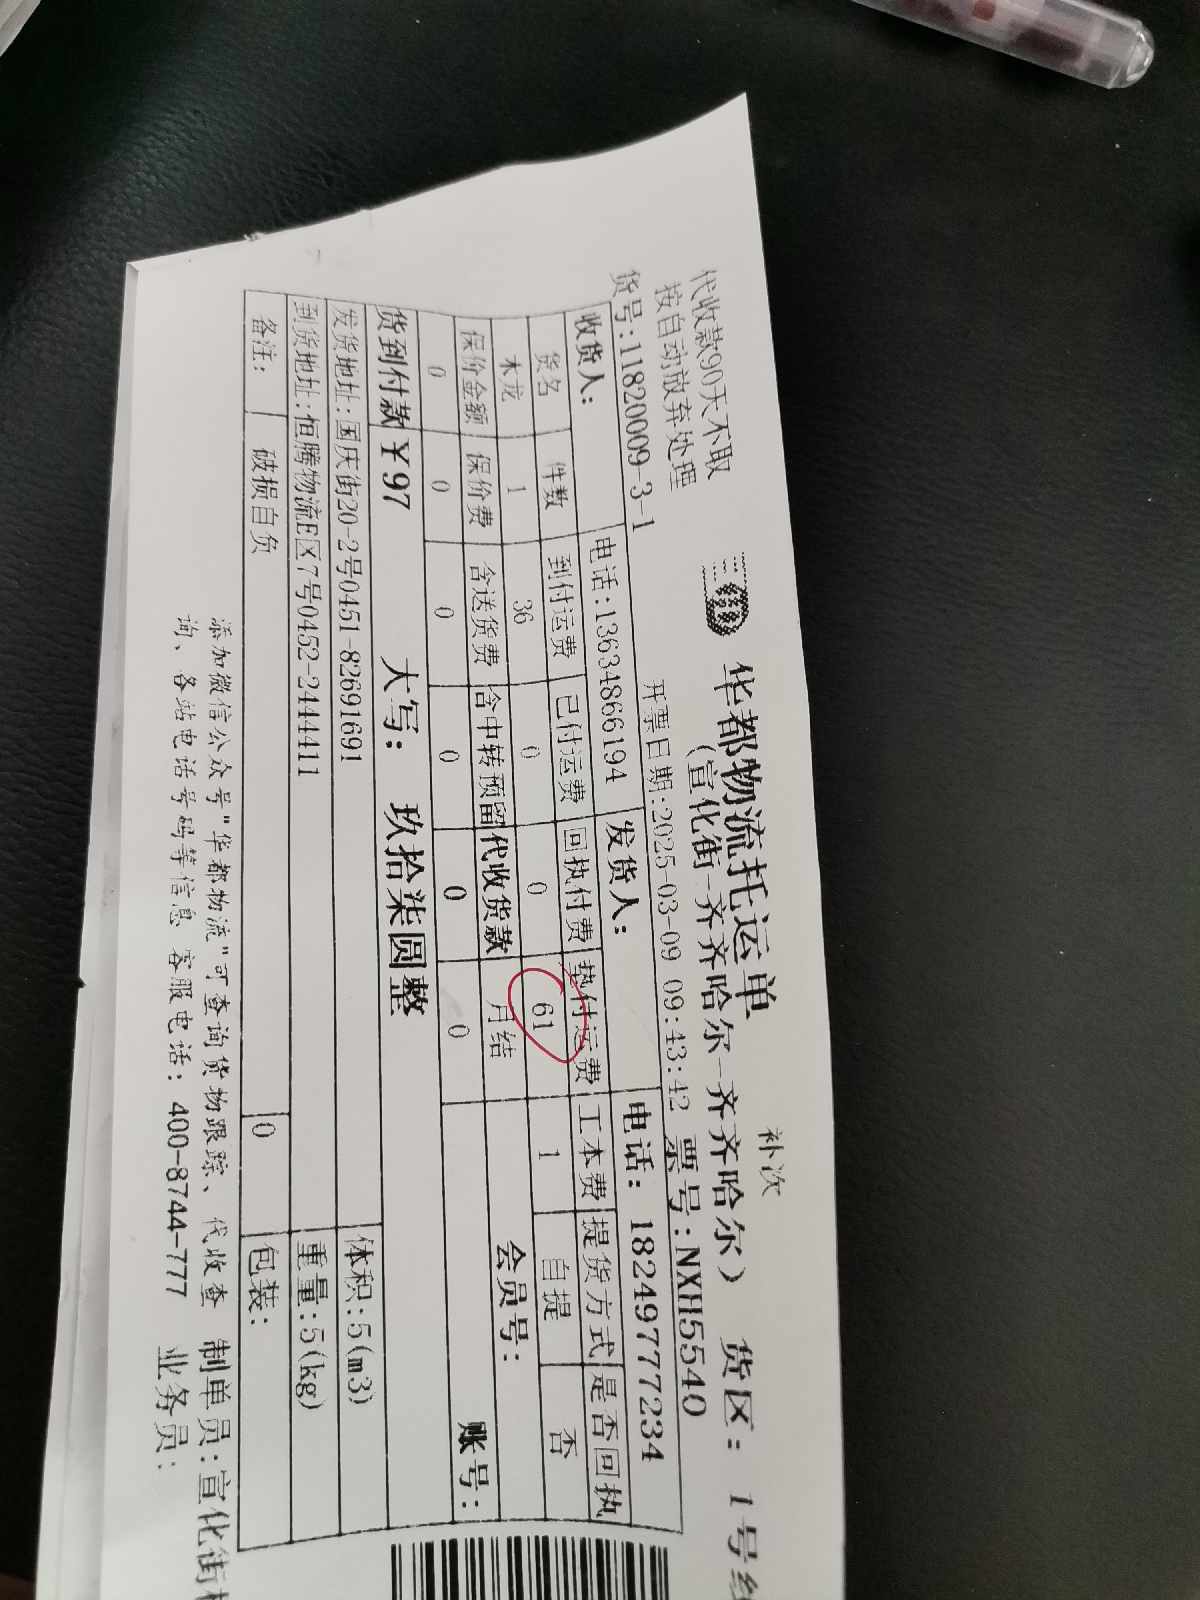 补次
代收款90天不取
按自动放弃处理
华都物流托运单
(宣化街-齐齐哈尔-齐齐哈尔)
货区: 1号
货号:11820009-3-1
开票日期:2025-03-09 09:43:42
票号:NXH5540
收货人:
电话:13634866194
发货人:
电话: 18249777234
货名 件数 到付运费 已付运费 回执付费 垫付运费 工本费 提货方式 是否回执
木龙 1 36 0 0 61 1 自提 否
保价金额 保价费 含送货费 含中转预留 代收货款 月结 会员号:
0 0 0 0 0 0 账号:
货到付款 ￥97 大写: 玖拾柒圆整
发货地址:国庆街20-2号0451-82691691 体积:5(m3)
到货地址:恒腾物流E区7号0452-2444411 重量:5(kg)
备注: 破损自负 0 包装:
添加微信公众号"华都物流"可查询货物跟踪、代收查 制单员:宣化街
询、各站电话号码等信息 客服电话: 400-8744-777 业务员: